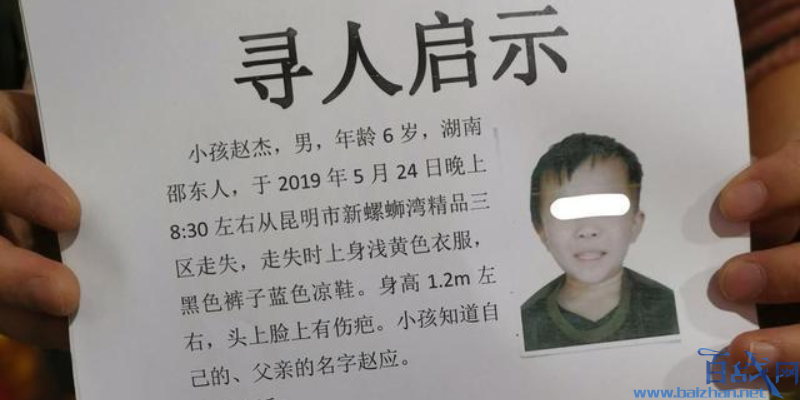 寻人启示
小孩赵杰，男，年龄 6 岁，湖南
邵东人，于 2019 年 5 月 24 日晚上
8:30 左右从昆明市新螺蛳湾精品三
区走失，走失时上身浅黄色衣服，
黑色裤子蓝色凉鞋。身高 1.2m 左
右，头上脸上有伤疤。小孩知道自
己的、父亲的名字赵应。
百战网
www.baizhan.net